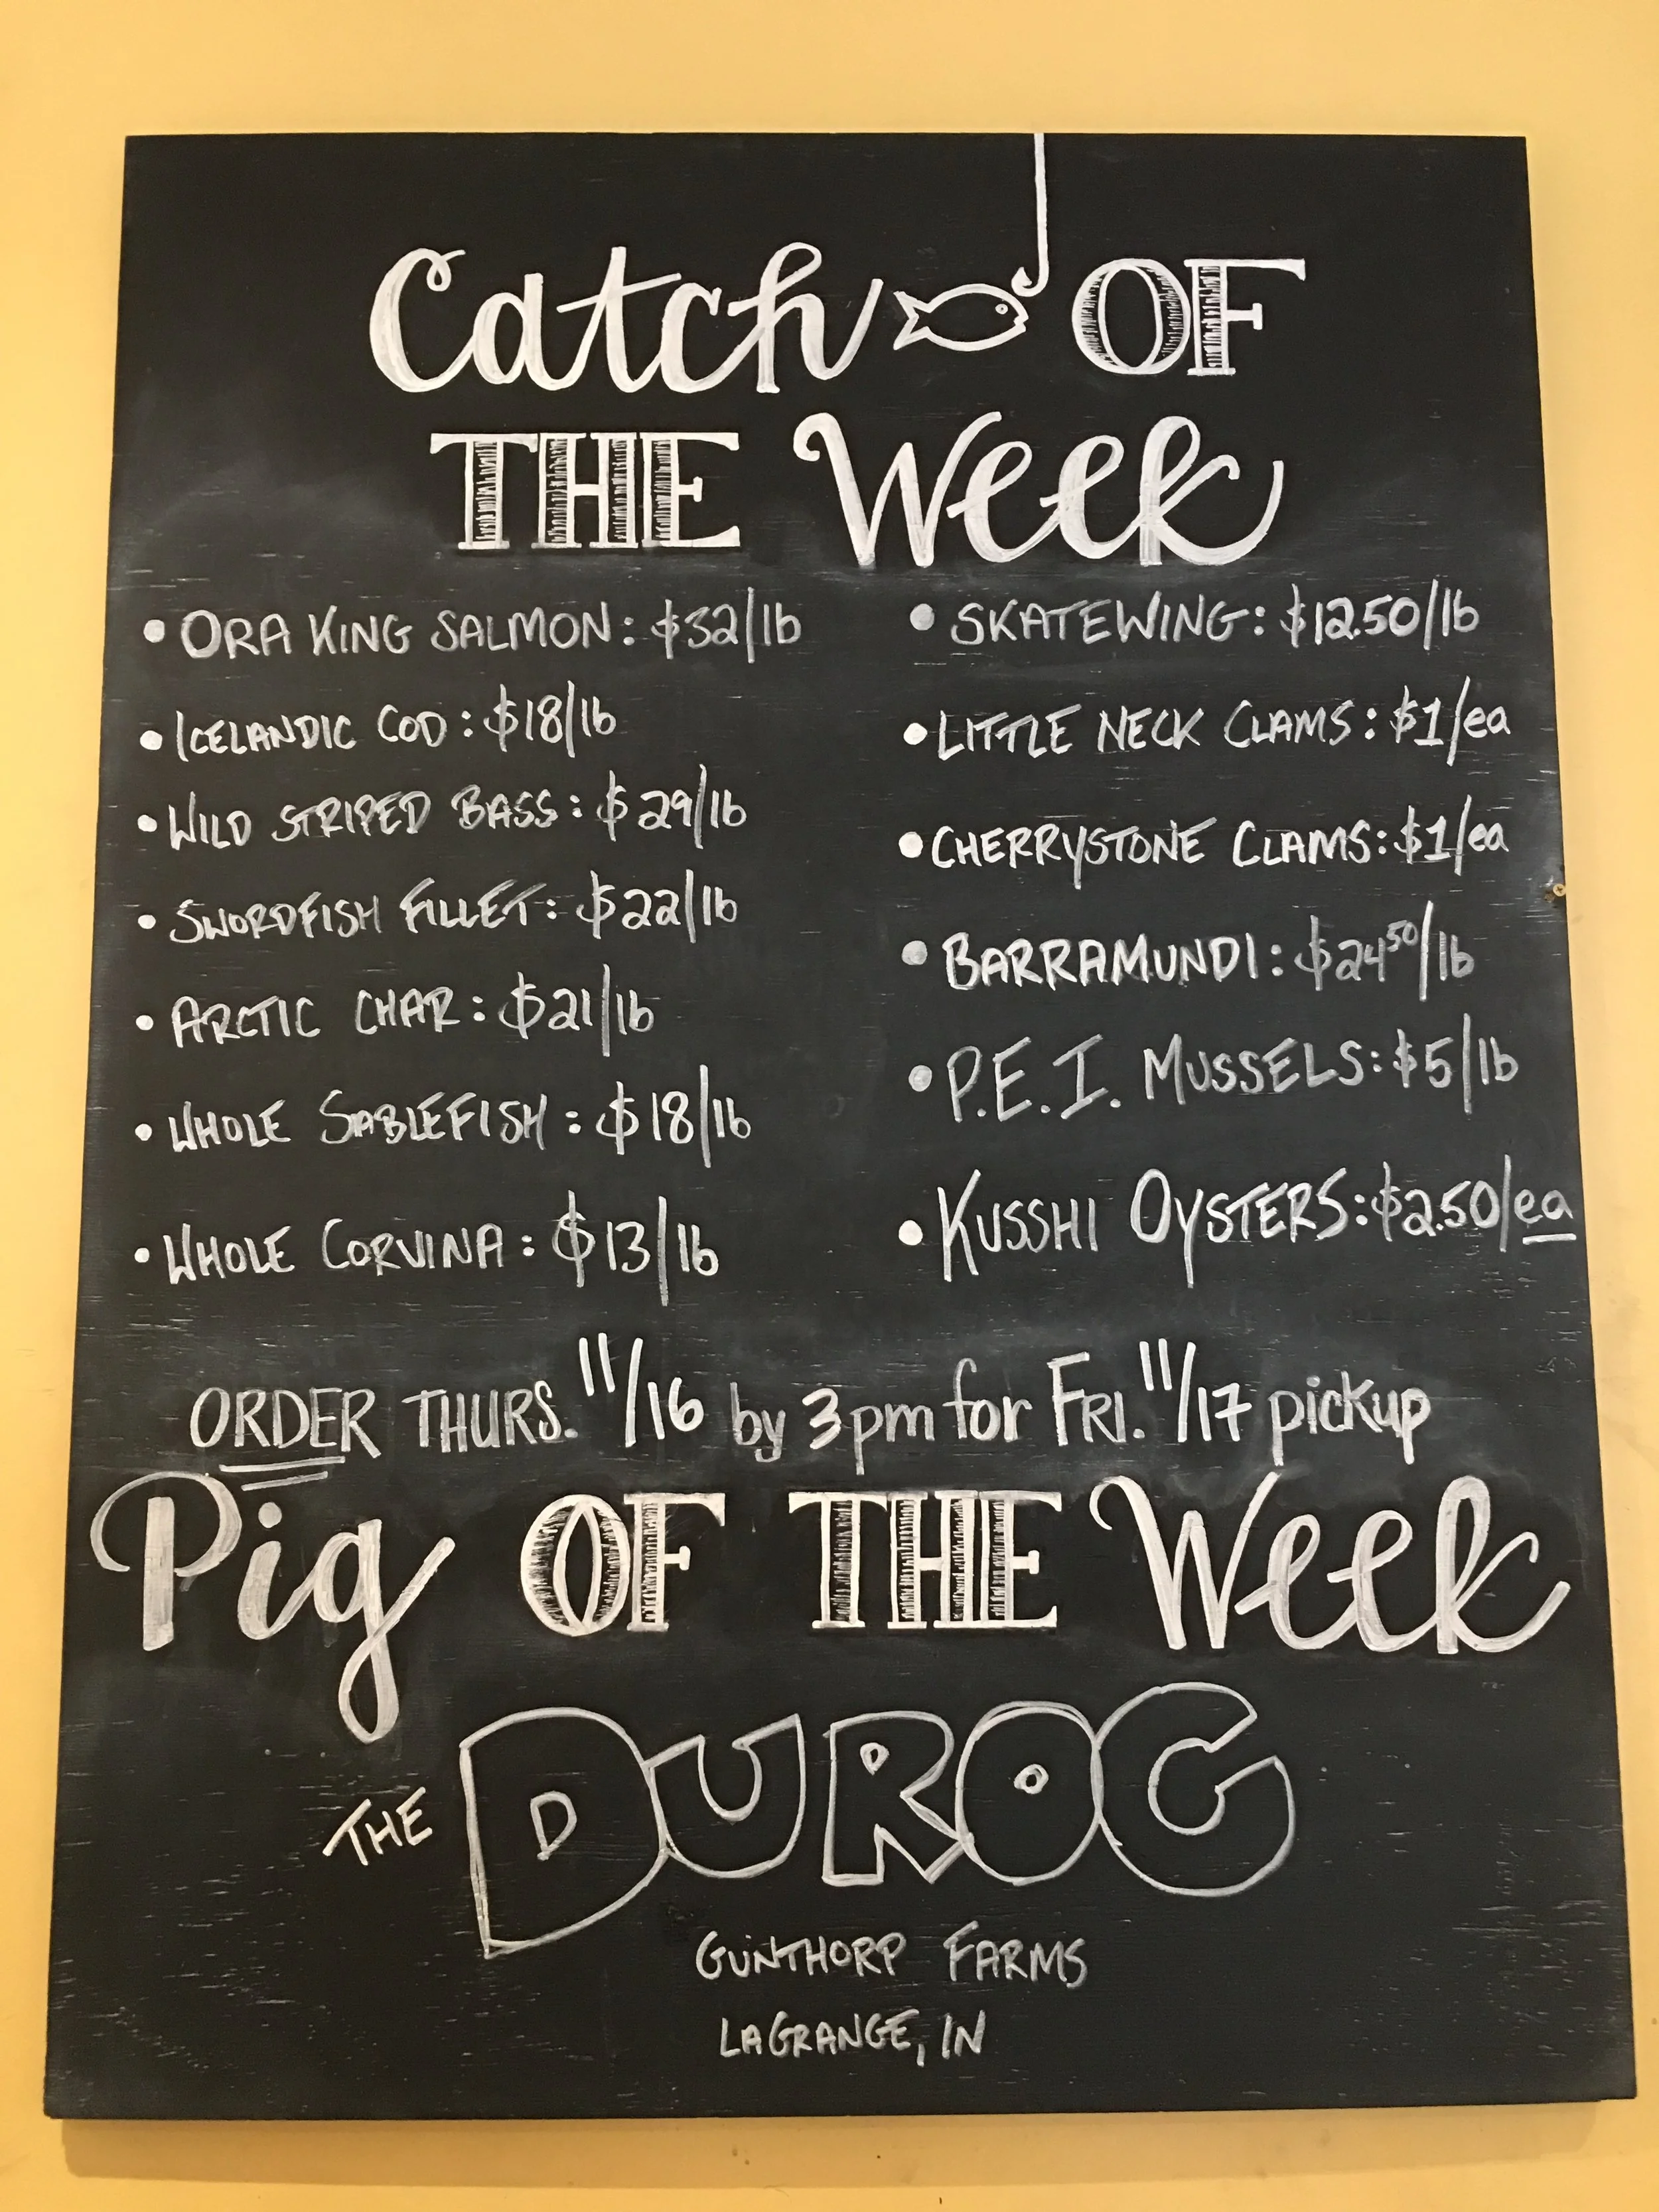 Catch OF
THE Week
• ORA KING SALMON: $32/lb
• ICELANDIC COD: $18/lb
• WILD STRIPED BASS: $29/lb
• SWORDFISH FILLET: $22/lb
• ARCTIC CHAR: $21/lb
• WHOLE SABLEFISH: $18/lb
• WHOLE CORVINA: $13/lb
• SKATEWING: $12.50/lb
• LITTLE NECK CLAMS: $1/ea
• CHERRYSTONE CLAMS: $1/ea
• BARRAMUNDI: $24⁵⁰/lb
• P.E.I. MUSSELS: $5/lb
• KUSSHI OYSTERS: $2.50/ea
ORDER THURS. 11/16 by 3pm for FRI. 11/17 pickup
Pig OF THE Week
THE DUROC
GUNTHORP FARMS
LAGRANGE, IN